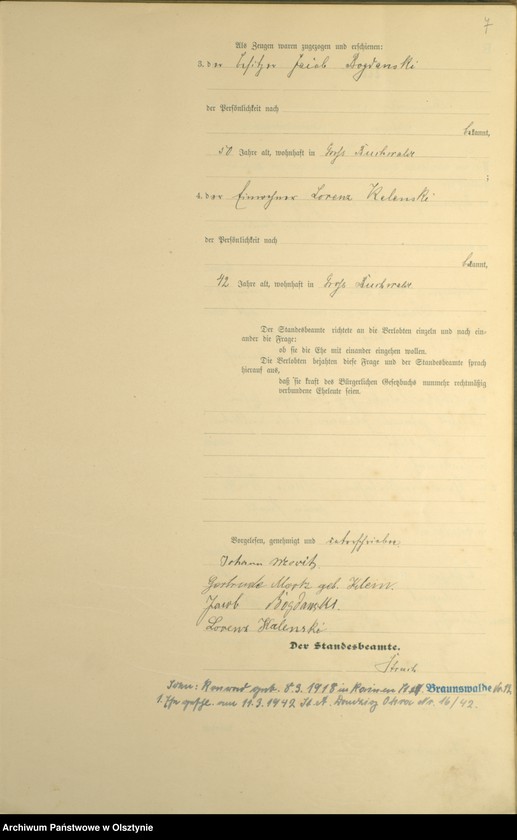 7
Als Zeugen waren zugezogen und erschienen:
3. der Besitzer Jacob Bogdanski
der Persönlichkeit nach
bekannt,
50 Jahre alt, wohnhaft in Groß Buchwalde
;
4. der Einwohner Lorenz Kalenski
der Persönlichkeit nach
bekannt,
42 Jahre alt, wohnhaft in Groß Buchwalde
Der Standesbeamte richtete an die Verlobten einzeln und nach ein-
ander die Frage:
ob sie die Ehe mit einander eingehen wollen.
Die Verlobten bejahten diese Frage und der Standesbeamte sprach
hierauf aus,
daß sie kraft des Bürgerlichen Gesetzbuchs nunmehr rechtmäßig
verbundene Eheleute seien.
Vorgelesen, genehmigt und unterschrieben:
Johann
Gertrude geb. Klein.
Jacob Bogdanski.
Lorenz Kalenski
Der Standesbeamte.
Konrad geb. 8.3.1918 in Braunswalde Nr. 12.
1. Ehe geschl. am 11.3.1942 St. A. Danzig Ohra Nr. 16/42.
Archiwum Państwowe w Olsztynie